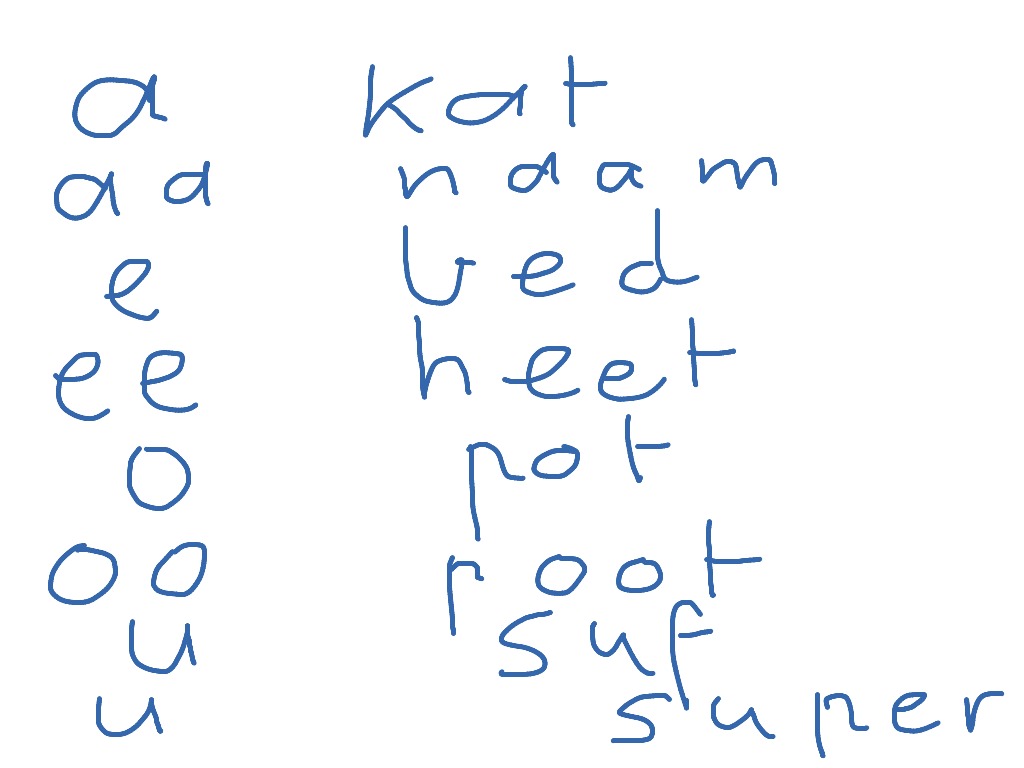 a kat
aa naam
e bed
ee heet
o pot
oo root
u suf
u super